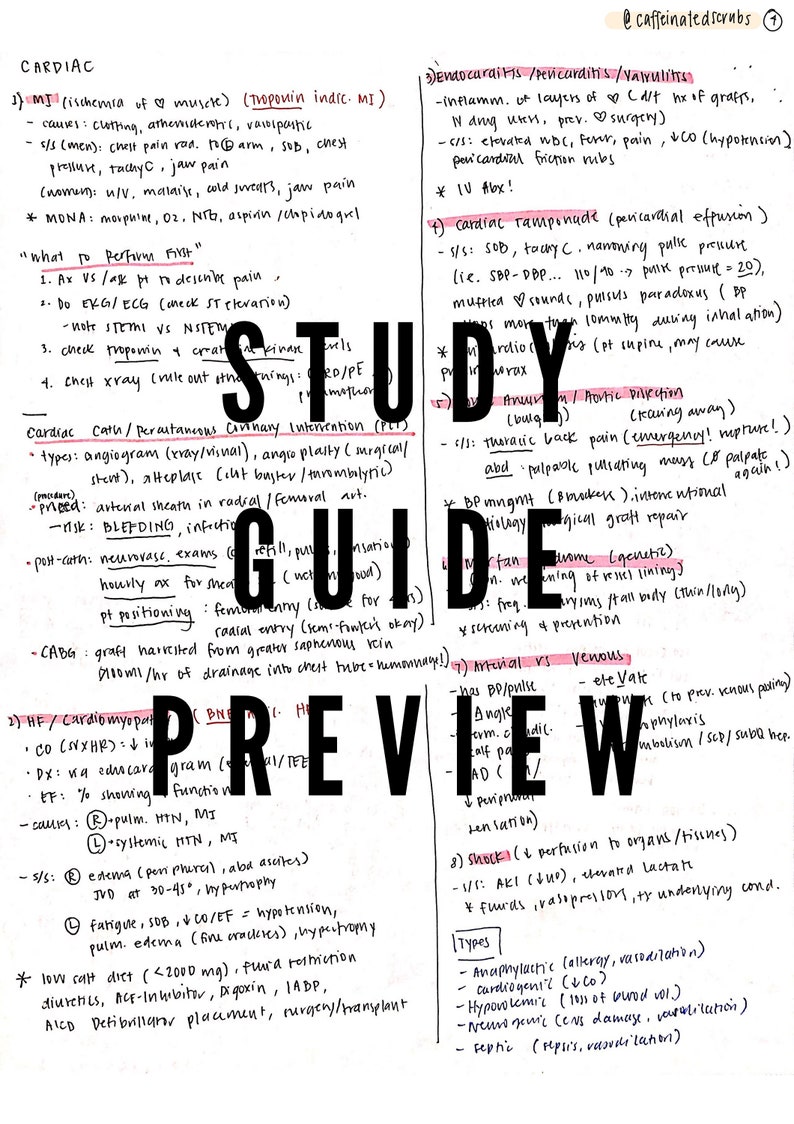 @caffeinatedscrubs 1
CARDIAC
1) MI (ischemia of ♡ muscle) (troponin indic. MI)
- causes: clotting, atherosclerotic, vasospastic
- s/s (men): chest pain rad. to Ⓛ arm, SOB, chest
pressure, tachyC, jaw pain
(women): n/v, malaise, cold sweats, jaw pain
* MONA: morphine, O2, NTG, aspirin/clopidogrel
"What to Perform First"
1. Ax VS/ask pt to describe pain
2. Do EKG/ECG (check ST elevation)
- note STEMI VS NSTEMI
3. check troponin + creatine kinase levels
4. chest xray (rule out other things: GERD/PE
pneumothorax)
Cardiac Cath/Percutaneous Coronary Intervention (PCI)
• types: angiogram (xray/visual), angioplasty (surgical/
stent), alteplase (clot buster/thrombolytic)
(procedure)
• proced: arterial sheath in radial/femoral art.
- risk: BLEEDING, infection
• post-cath: neurovasc. exams refill, pulses, sensation
hourly ax for
pt positioning: femoral entry
radial entry (semi-fowler's okay)
• CABG: graft harvested from greater saphenous vein
100ml/hr of drainage into chest tube = hemorrhage!)
2) HF/Cardiomyopathy
• CO (SVxHR): ↓ in
• DX: via echocardiogram /TEE
• EF: % showing function
- causes: Ⓡ → pulm. HTN, MI
Ⓛ → systemic HTN, MI
- s/s: Ⓡ edema (peripheral, abd ascites)
JVD at 30-45°, hypertrophy
Ⓛ fatigue, SOB, ↓CO/EF = hypotension,
pulm. edema (fine crackles), hypertrophy
* low salt diet (<2000 mg), fluid restriction
diuretics, ACE-Inhibitor, Digoxin, IABP,
AICD Defibrillator placement, surgery/transplant
3) Endocarditis/Pericarditis/Valvulitis
- inflamm. of layers of ♡ d/t hx of grafts,
IV drug users, prev. ♡ surgery)
- s/s: elevated WBC, fever, pain, ↓CO (hypotension)
pericardial friction rubs
* IV Abx!
4) Cardiac Tamponade (pericardial effusion)
- s/s: SOB, tachyC, narrowing pulse pressure
(i.e. SBP-DBP... 110/90 -> pulse pressure = 20),
muffled ♡ sounds, pulsus paradoxus (BP
drops more than 10mmHg during inhalation)
* (pt supine, may cause
pneumothorax
5) Aneurysm/Aortic Dissection
(bulging) (tearing away)
- s/s: thoracic: back pain (emergency! rupture!)
abd: palpable pulsating mass (Ø palpate
again!)
* BP mngmt (B blockers), interventional
radiology, surgical graft repair
Marfan Syndrome (genetic)
weakening of vessel lining)
s/s: freq. aneurysms/tall body (thin/long)
* screening & prevention
7) Arterial vs Venous
- has BP/pulse
- Dangle
calf pain
↓ peripheral
sensation)
- eleVate
(to prev. venous pooling)
embolism/SCD/subQ hep.
8) Shock (↓ perfusion to organs/tissues)
- s/s: AKI (↓UO), elevated lactate
* fluids, vasopressors, tx underlying cond.
Types
- Anaphylactic (allergy, vasodilation)
- cardiogenic (↓CO)
- Hypovolemic (loss of blood vol.)
- Neurogenic (CNS damage, vasodilation)
- septic (sepsis, vasodilation)
STUDY
GUIDE
PREVIEW